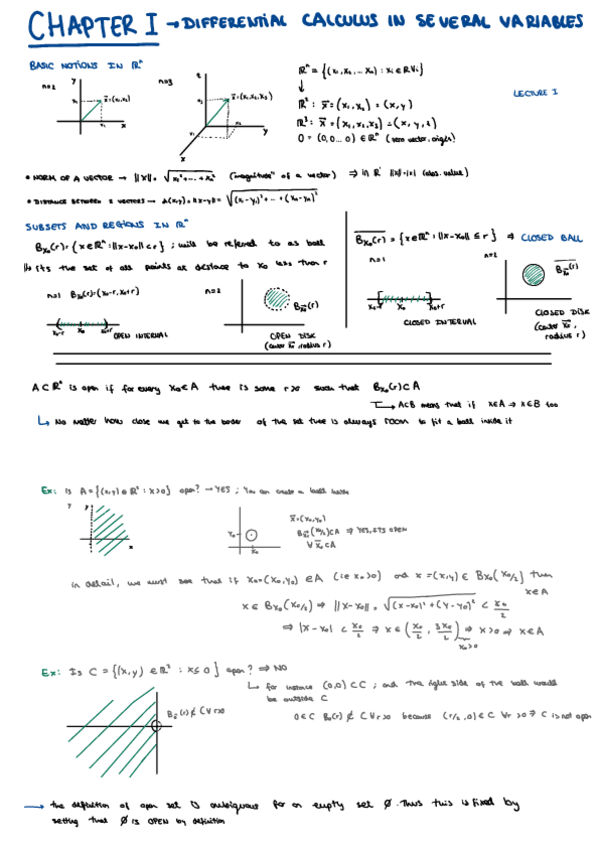 CHAPTER I → DIFFERENTIAL CALCULUS IN SEVERAL VARIABLES
BASIC NOTIONS IN ℝⁿ
LECTURE 1
n=2
y
x₂
x̄=(x₁,x₂)
x₁
x
n=3
z
x̄=(x₁,x₂,x₃)
y
x
ℝⁿ = {(x₁,x₂,... xₙ) : xᵢ ∈ ℝ ∀i}
↓
ℝ² : x̄ = (x₁,x₂) = (x,y)
ℝ³ : x̄ = (x₁,x₂,x₃) = (x,y,z)
0 = (0,0...0) ∈ ℝⁿ (zero vector, origin)
• NORM OF A VECTOR → ||x|| = √x₁²+...+xₙ² ("magnitude" of a vector) ⇒ in ℝ ||x||=|x| (abs. value)
• DISTANCE BETWEEN 2 VECTORS → d(x,y) = ||x-y|| = √(x₁-y₁)²+...+(xₙ-yₙ)²
SUBSETS AND REGIONS IN ℝⁿ
Bx₀(r) = {x∈ℝⁿ : ||x-x₀|| < r} ; will be referred to as ball
↳ its the set of all points at distance to x₀ less than r
n=1 Bx₀(r)=(x₀-r, x₀+r)
x₀-r x₀ x₀+r
OPEN INTERVAL
n=2
Bx̄₀(r)
OPEN DISK
(center x̄₀, radius r)
Bx₀(r) = {x∈ℝⁿ : ||x-x₀|| ≤ r} → CLOSED BALL
n=1
x₀-r x₀ x₀+r
CLOSED INTERVAL
n=2
Bx̄₀(r)
CLOSED DISK
(center x̄₀, radius r)
A⊂ℝⁿ is open if for every x₀∈A there is some r>0 such that Bx₀(r)⊂A
↳ A⊂B means that if x∈A → x∈B too
↳ No matter how close we get to the border of the set there is always room to fit a ball inside it
Ex: is A={(x,y)∈ℝ² : x>0} open? → YES ; You can create a ball inside
y
x
y₀
x₀
x̄=(x₀,y₀)
Bx̄₀(x₀/2)⊂A ⇒ YES, ITS OPEN
∀ x̄₀⊂A
in detail, we must see that if x₀=(x₀,y₀) ∈A (ie x₀>0) and x=(x,y) ∈ Bx₀(x₀/2) then
x∈A
x∈ Bx₀(x₀/2) ⇒ ||x-x₀|| = √(x-x₀)²+(y-y₀)² < x₀/2
⇒ |x-x₀| < x₀/2 ⇒ x∈(x₀/2, 3x₀/2) ⇒ x>0 ⇒ x∈A
x₀>0
Ex: Is C = {(x,y) ∈ℝ² : x≤0} open? ⇒ NO
↳ for instance (0,0)⊂C ; and the right side of the ball would
be outside C
B₀(r)⊄C ∀r>0
0∈C B₀(r)⊄C ∀r>0 because (r/2,0)∉C ∀r>0 ⇒ C is not open
→ the definition of open set is ambiguous for an empty set ∅. Thus this is fixed by
setting that ∅ is OPEN by definition